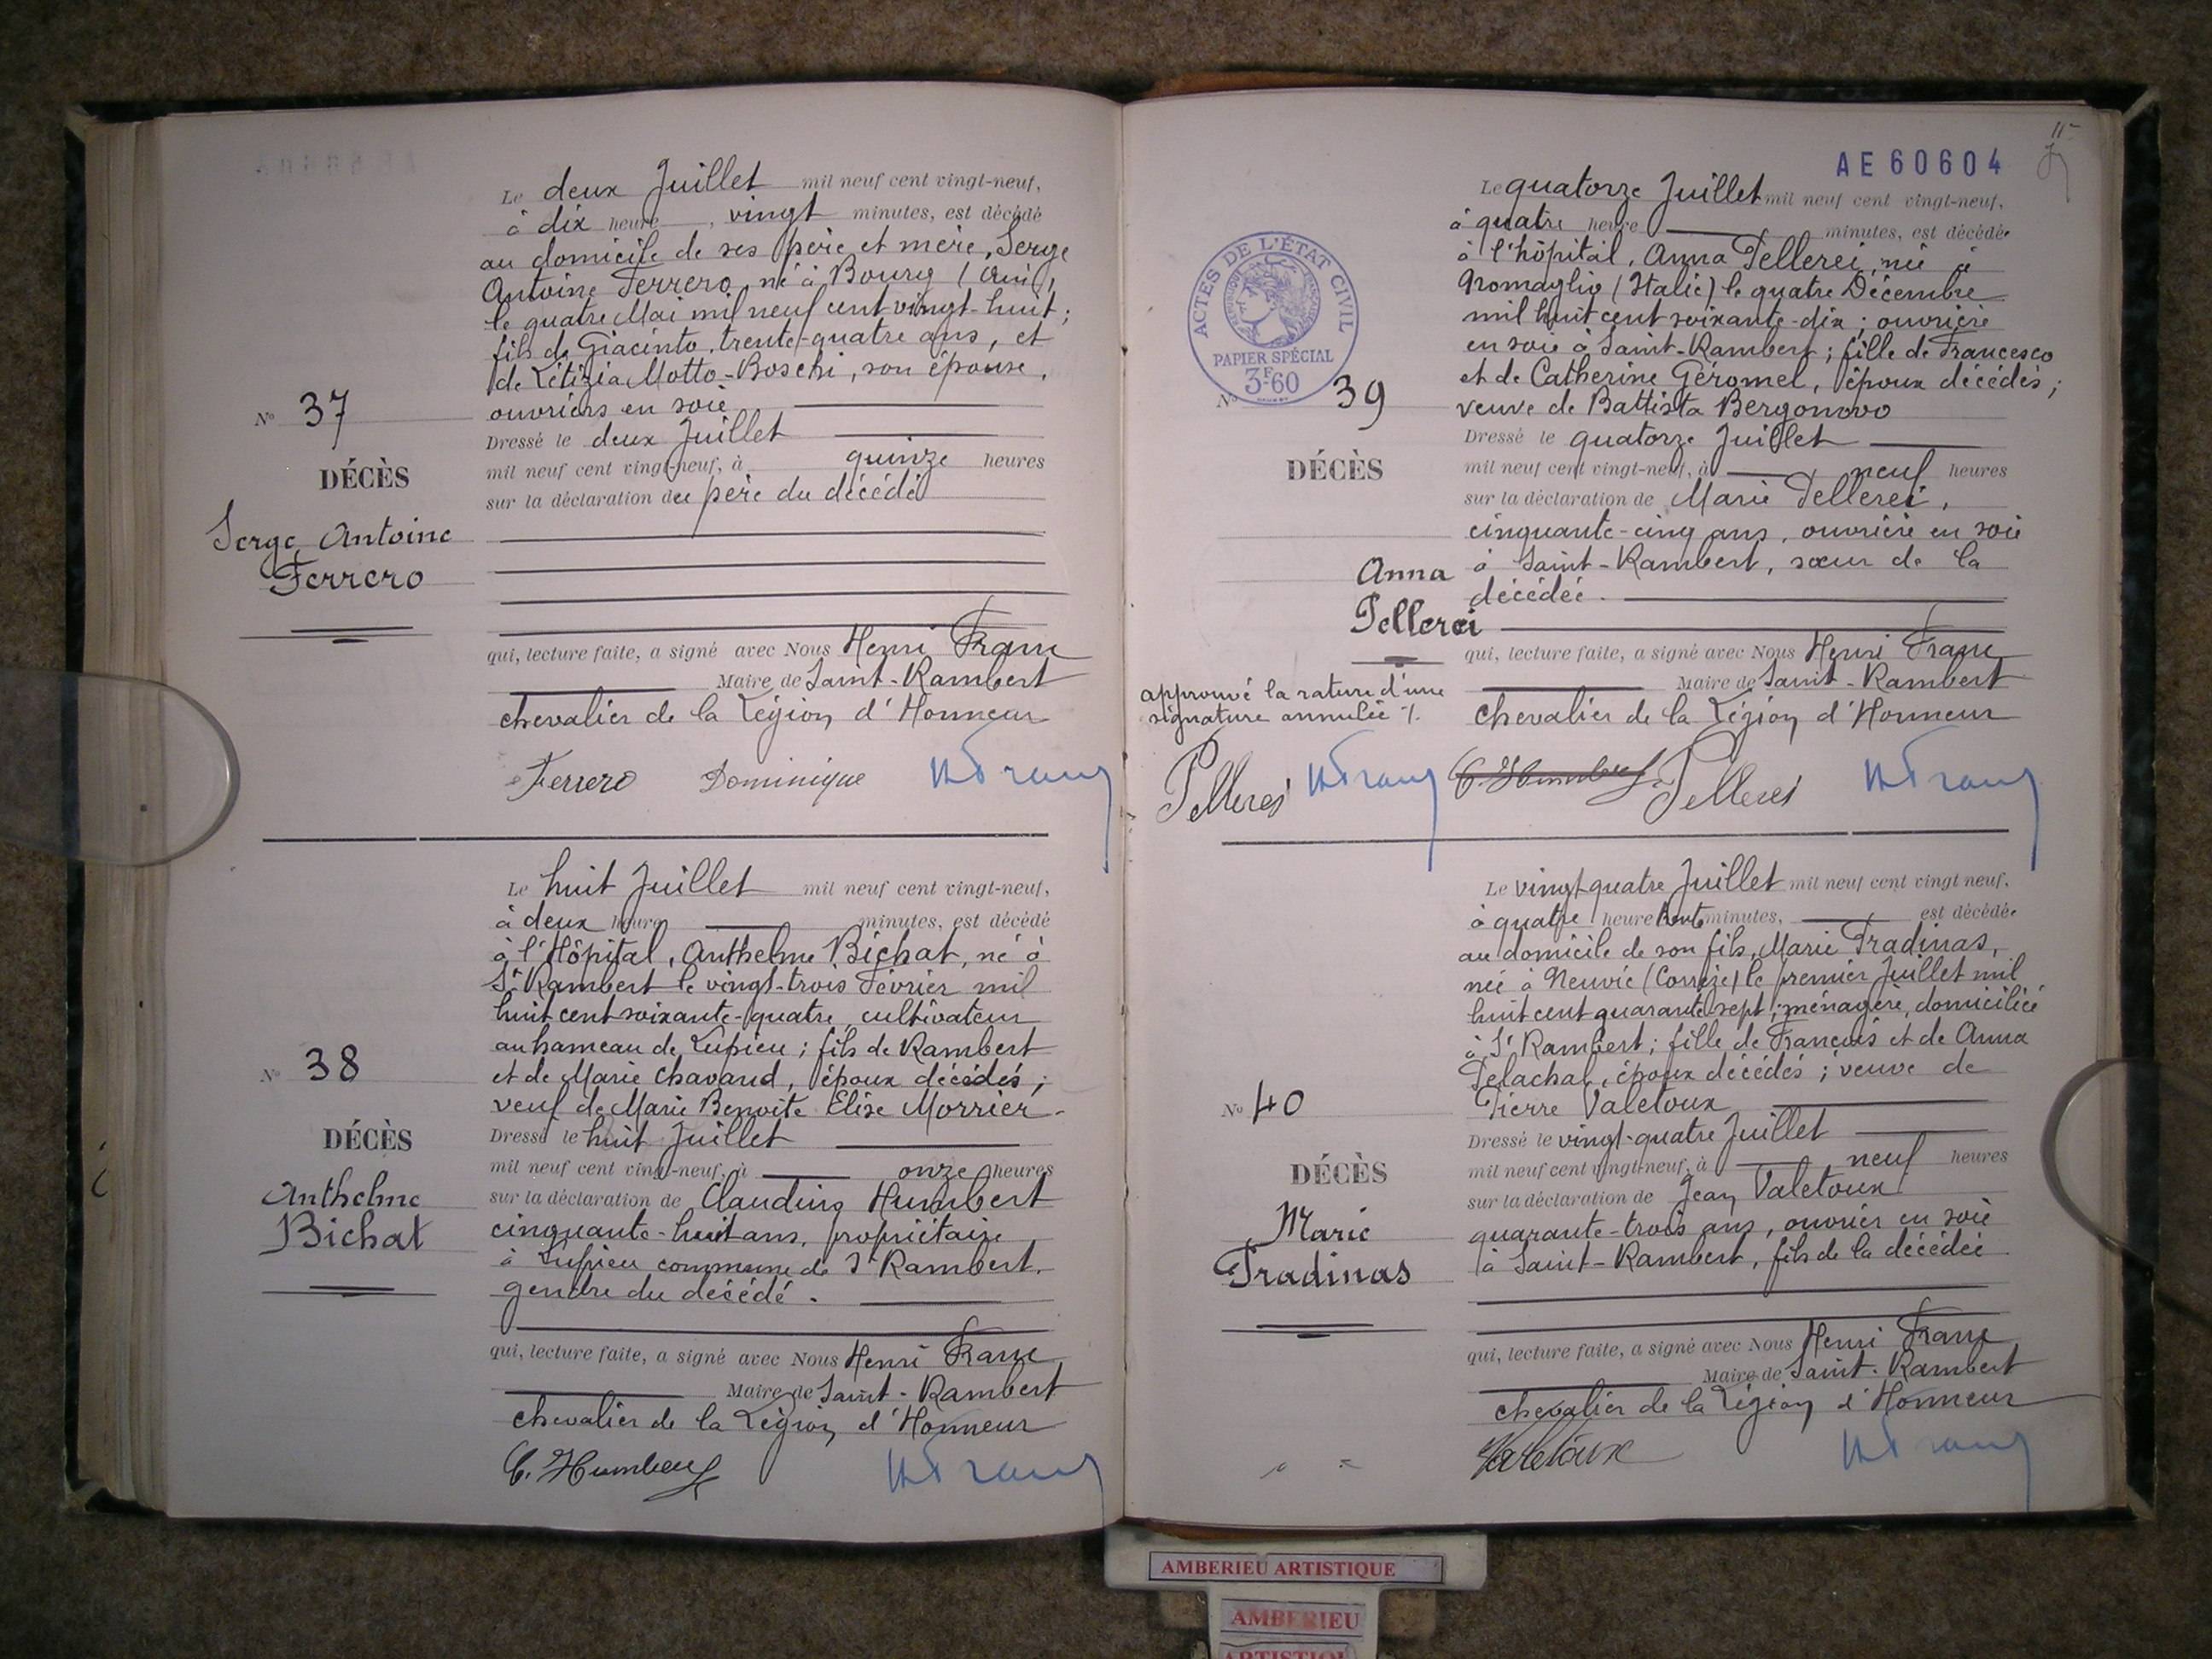 Le deux Juillet mil neuf cent vingt-neuf,
à dix heure, vingt minutes, est décédé
au domicile de ses père et mère, Serge
Antoine Ferrero, né à Bourg (Ain),
le quatre Mai mil neuf cent vingt-huit;
fils de Giacinto, trente-quatre ans, et
de Létizia Motto-Boschi, son épouse,
ouvriers en soie
Dressé le deux Juillet
mil neuf cent vingt-neuf, à quinze heures
sur la déclaration du père du décédé
N° 37
DÉCÈS
Serge Antoine
Ferrero
qui, lecture faite, a signé avec Nous Henri Franc
Maire de Saint-Rambert
chevalier de la Légion d'Honneur
Ferrero Dominique HFranc
Le huit Juillet mil neuf cent vingt-neuf,
à deux heure minutes, est décédé
à l'Hôpital, Anthelme Bichat, né à
St Rambert le vingt-trois Février mil
huit cent soixante-quatre, cultivateur
au hameau de Lupieu; fils de Rambert
et de Marie Chavand, époux décédés;
veuf de Marie Benoite Elise Morrier
Dressé le huit Juillet
mil neuf cent vingt-neuf, à onze heures
sur la déclaration de Claudius Humbert
cinquante-huit ans, propriétaire
à Lupieu commune de St Rambert,
gendre du décédé.
N° 38
DÉCÈS
Anthelme
Bichat
qui, lecture faite, a signé avec Nous Henri Franc
Maire de Saint-Rambert
chevalier de la Légion d'Honneur
C. Humbert HFranc
AE60604
ACTES DE L'ÉTAT CIVIL
RÉPUBLIQUE FRANÇAISE
PAPIER SPÉCIAL
3F60
Le quatorze Juillet mil neuf cent vingt-neuf,
à quatre heure minutes, est décédée
à l'hôpital, Anna Pellerei, née à
Gromaglio (Italie) le quatre Décembre
mil huit cent soixante-dix; ouvrière
en soie à Saint-Rambert; fille de Francesco
et de Catherine Géromel, époux décédés;
veuve de Battista Bergonovo
Dressé le quatorze Juillet
mil neuf cent vingt-neuf, à neuf heures
sur la déclaration de Marie Pellerei,
cinquante-cinq ans, ouvrière en soie
à Saint-Rambert, sœur de la
décédée.
N° 39
DÉCÈS
Anna
Pellerei
qui, lecture faite, a signé avec Nous Henri Franc
Maire de Saint-Rambert
chevalier de la Légion d'Honneur
approuvé la rature d'une
signature annulée /.
Pellerei HFranc C. Humbert Pellerei HFranc
Le vingt quatre Juillet mil neuf cent vingt neuf,
à quatre heure trente minutes, est décédée
au domicile de son fils, Marie Pradinas,
née à Neuvic (Corrèze) le premier Juillet mil
huit cent quarante sept; ménagère, domiciliée
à St Rambert; fille de François et de Anna
Pelachal, époux décédés; veuve de
Pierre Valetoux
Dressé le vingt-quatre Juillet
mil neuf cent vingt-neuf, à neuf heures
sur la déclaration de Jean Valetoux
quarante-trois ans, ouvrier en soie
à Saint-Rambert, fils de la décédée
N° 40
DÉCÈS
Marie
Pradinas
qui, lecture faite, a signé avec Nous Henri Franc
Maire de Saint-Rambert
chevalier de la Légion d'Honneur
Valetoux HFranc
AMBERIEU ARTISTIQUE
AMBERIEU
ARTISTIQUE